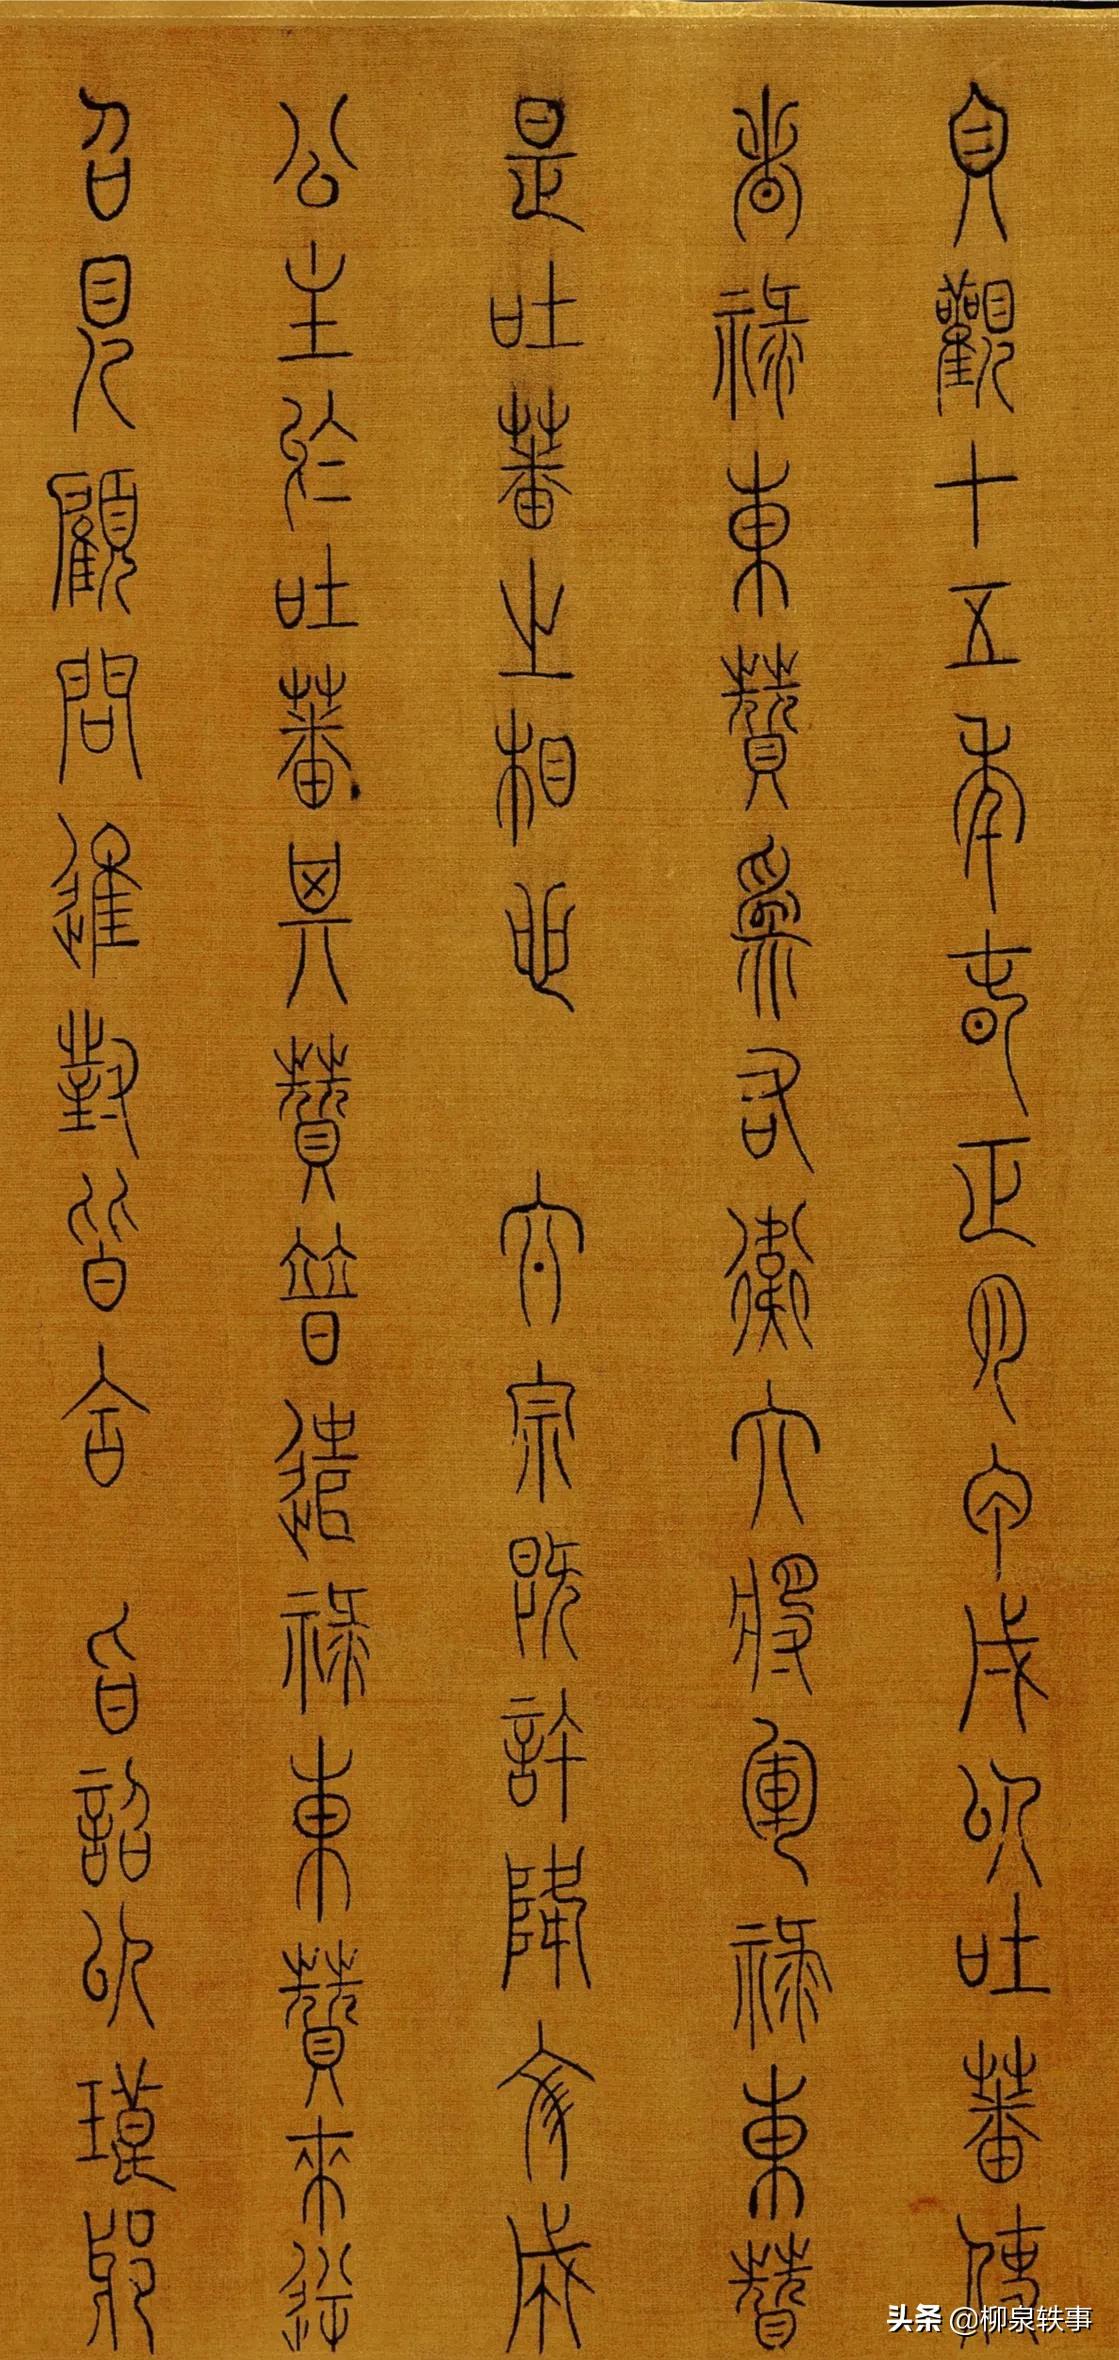 貞觀十五年春正月甲戌以吐蕃使
者祿東贊爲右衛大將軍祿東贊
是吐蕃之相也 太宗既許降文成
公主於吐蕃其贊普遣祿東贊來逆
召見顧問進對皆合 旨詔以琅邪
头条 @柳泉轶事